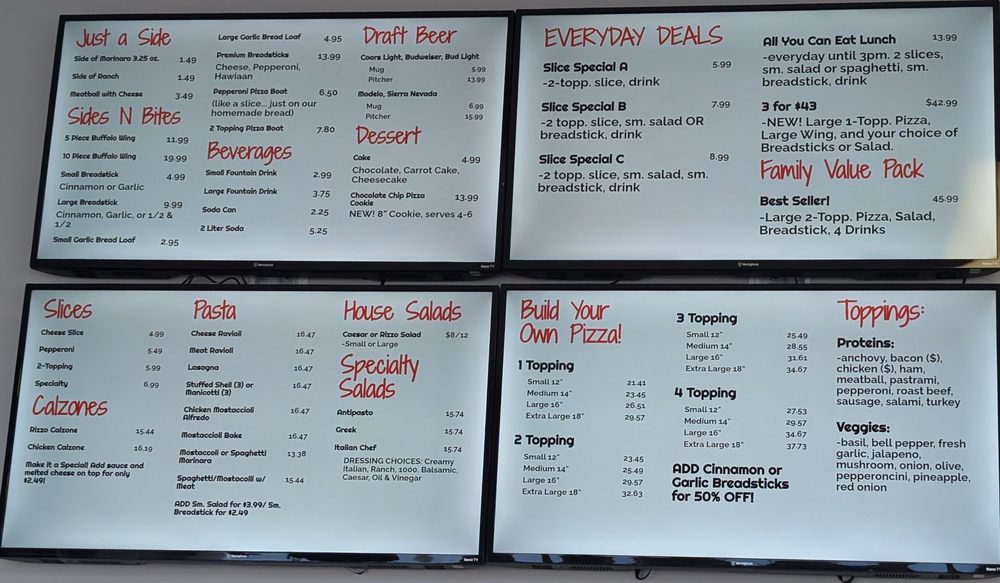 Just a Side
Side of Marinara 3.25 oz. 1.49
Side of Ranch 1.49
Meatball with Cheese 3.49
Sides N Bites
5 Piece Buffalo Wing 11.99
10 Piece Buffalo Wing 19.99
Small Breadstick 4.99
Cinnamon or Garlic
Large Breadstick 9.99
Cinnamon, Garlic, or 1/2 &
1/2
Small Garlic Bread Loaf 2.95
Large Garlic Bread Loaf 4.95
Premium Breadsticks 13.99
Cheese, Pepperoni,
Hawaiian
Pepperoni Pizza Boat 6.50
(like a slice... just on our
homemade bread)
2 Topping Pizza Boat 7.80
Beverages
Small Fountain Drink 2.99
Large Fountain Drink 3.75
Soda Can 2.25
2 Liter Soda 5.25
Draft Beer
Coors Light, Budweiser, Bud Light
Mug 5.99
Pitcher 13.99
Modelo, Sierra Nevada
Mug 6.99
Pitcher 15.99
Dessert
Cake 4.99
Chocolate, Carrot Cake,
Cheesecake
Chocolate Chip Pizza 13.99
Cookie
NEW! 8" Cookie, serves 4-6
Westinghouse
Roku TV
EVERYDAY DEALS
Slice Special A 5.99
-2-topp. slice, drink
Slice Special B 7.99
-2 topp. slice, sm. salad OR
breadstick, drink
Slice Special C 8.99
-2 topp. slice, sm. salad, sm.
breadstick, drink
All You Can Eat Lunch 13.99
-everyday until 3pm. 2 slices,
sm. salad or spaghetti, sm.
breadstick, drink
3 for $43 $42.99
-NEW! Large 1-Topp. Pizza,
Large Wing, and your choice of
Breadsticks or Salad.
Family Value Pack
Best Seller! 45.99
-Large 2-Topp. Pizza, Salad,
Breadstick, 4 Drinks
Westinghouse
Roku TV
Slices
Cheese Slice 4.99
Pepperoni 5.49
2-Topping 5.99
Specialty 6.99
Calzones
Rizzo Calzone 15.44
Chicken Calzone 16.19
Make it a Special! Add sauce and
melted cheese on top for only
$2.49!
Pasta
Cheese Ravioli 16.47
Meat Ravioli 16.47
Lasagna 16.47
Stuffed Shell (3) or 16.47
Manicotti (3)
Chicken Mostaccioli 16.47
Alfredo
Mostaccioli Bake 16.47
Mostaccoli or Spaghetti 13.38
Marinara
Spaghetti/Mostacolli w/ 15.44
Meat
ADD Sm. Salad for $3.99/ Sm.
Breadstick for $2.49
House Salads
Caesar or Rizzo Salad $8/12
-Small or Large
Specialty
Salads
Antipasto 15.74
Greek 15.74
Italian Chef 15.74
DRESSING CHOICES: Creamy
Italian, Ranch, 1000, Balsamic,
Caesar, Oil & Vinegar
Westinghouse
Roku TV
Build Your
Own Pizza!
1 Topping
Small 12" 21.41
Medium 14" 23.45
Large 16" 26.51
Extra Large 18" 29.57
2 Topping
Small 12" 23.45
Medium 14" 25.49
Large 16" 29.57
Extra Large 18" 32.63
3 Topping
Small 12" 25.49
Medium 14" 28.55
Large 16" 31.61
Extra Large 18" 34.67
4 Topping
Small 12" 27.53
Medium 14" 29.57
Large 16" 34.67
Extra Large 18" 37.73
ADD Cinnamon or
Garlic Breadsticks
for 50% OFF!
Toppings:
Proteins:
-anchovy, bacon ($),
chicken ($), ham,
meatball, pastrami,
pepperoni, roast beef,
sausage, salami, turkey
Veggies:
-basil, bell pepper, fresh
garlic, jalapeno,
mushroom, onion, olive,
pepperoncini, pineapple,
red onion
Westinghouse
Roku TV